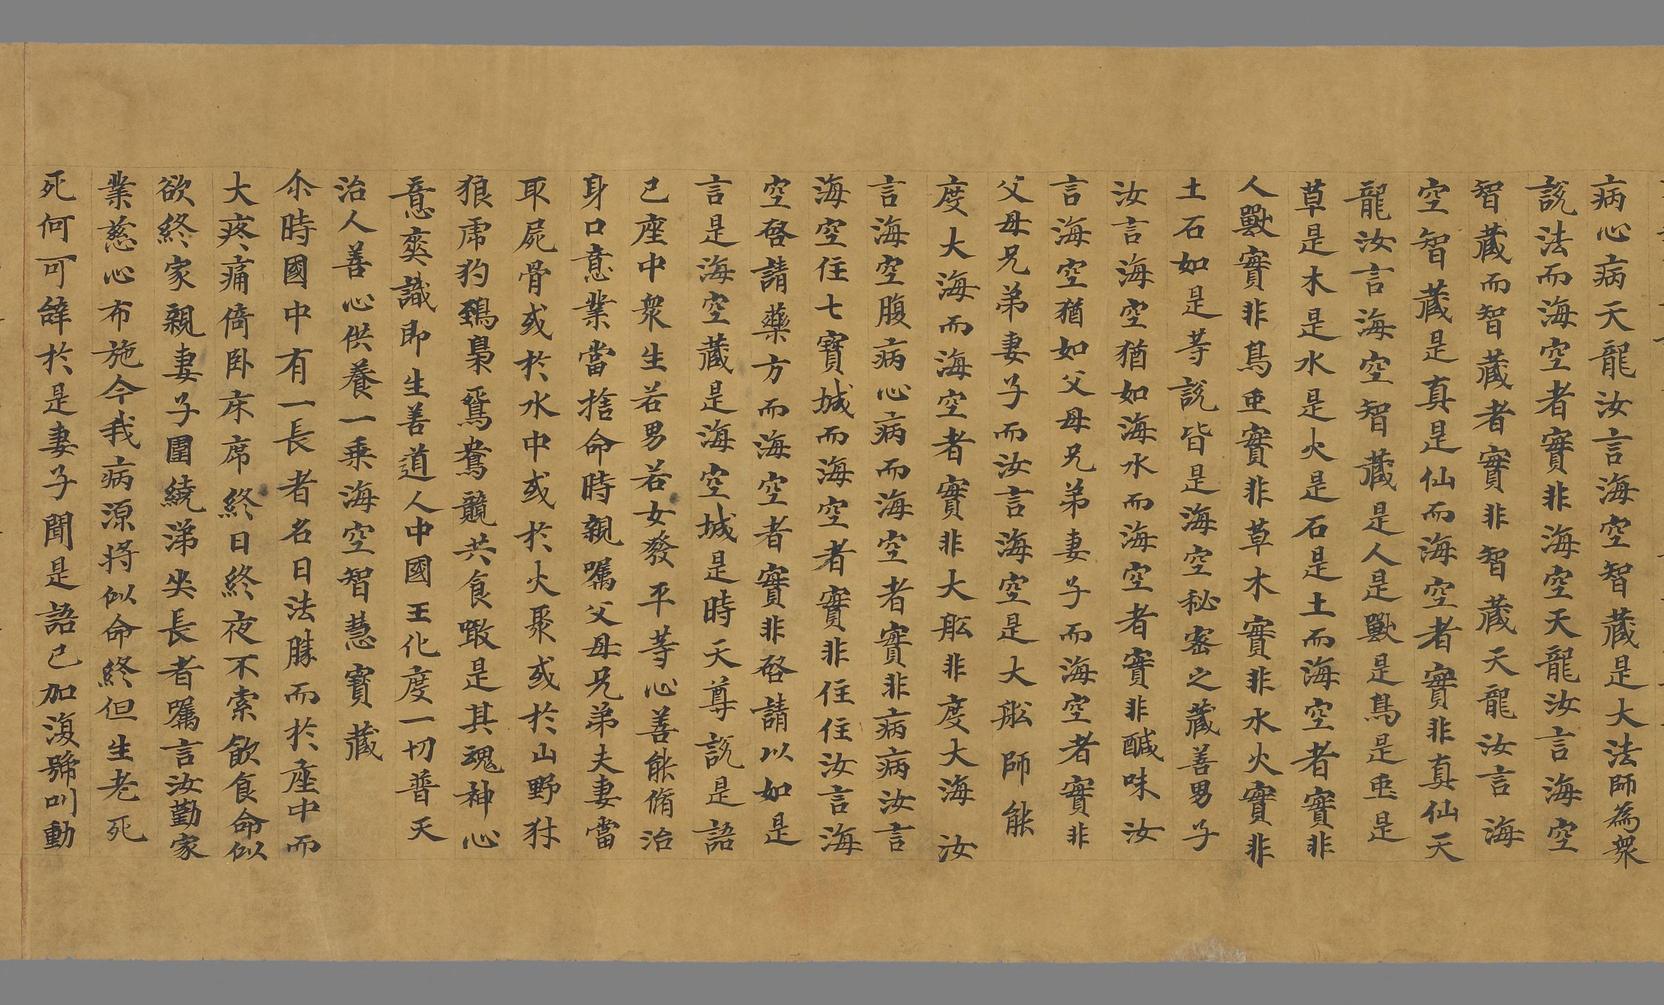 病心病天龍汝言海空智藏是大法師為衆
說法而海空者實非海空天龍汝言海空
智藏而智藏者實非智藏天龍汝言海
空智藏是真是仙而海空者實非真仙天
龍汝言海空智藏是人是獸是鳥是䖝是
草是木是水是火是石是土而海空者實非
人獸實非鳥䖝實非草木實非水火實非
土石如是等說皆是海空秘密之藏善男子
汝言海空猶如海水而海空者實非醎味汝
言海空猶如父母兄弟妻子而海空者實非
父母兄弟妻子而汝言海空是大舩師能
度大海而海空者實非大舩非度大海汝
言海空腹病心病而海空者實非病病汝言
海空住七寶城而海空者實非住住汝言海
空啓請藥方而海空者實非啓請以如是
言是海空藏是海空城是時天尊說是語
已座中衆生若男若女發平等心善能脩治
身口意業當捨命時親囑父母兄弟夫妻當
取屍骨或於水中或於火聚或於山野犲
狼虎豹鵄梟鵶鴦競共食噉是其魂神心
意爽識即生善道人中國王化度一切普天
治人善心供養一乗海空智慧寶藏
尒時國中有一長者名曰法勝而於座中而
大疼痛倚卧床席終日終夜不索飲食命似
欲終家親妻子圍繞涕𡘜長者囑言汝勤家
業慈心布施今我病源將似命終但生老死
死何可辝於是妻子聞是語已加復號叫動